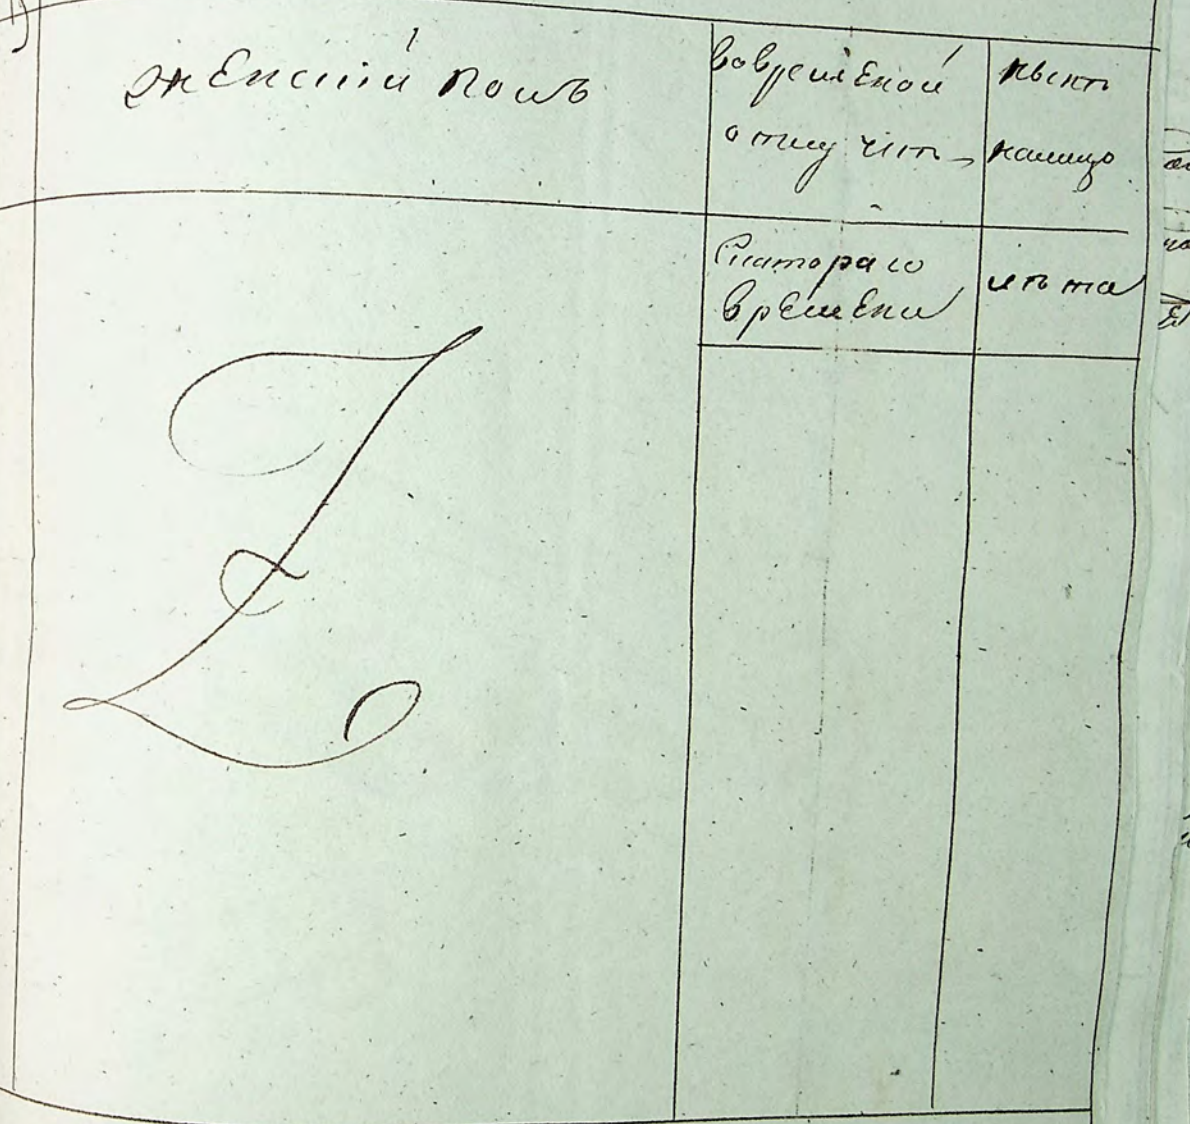 женский полъ
вовременной
отлучкѣ
нынѣ
налицо
Скотораго
времени
лѣта